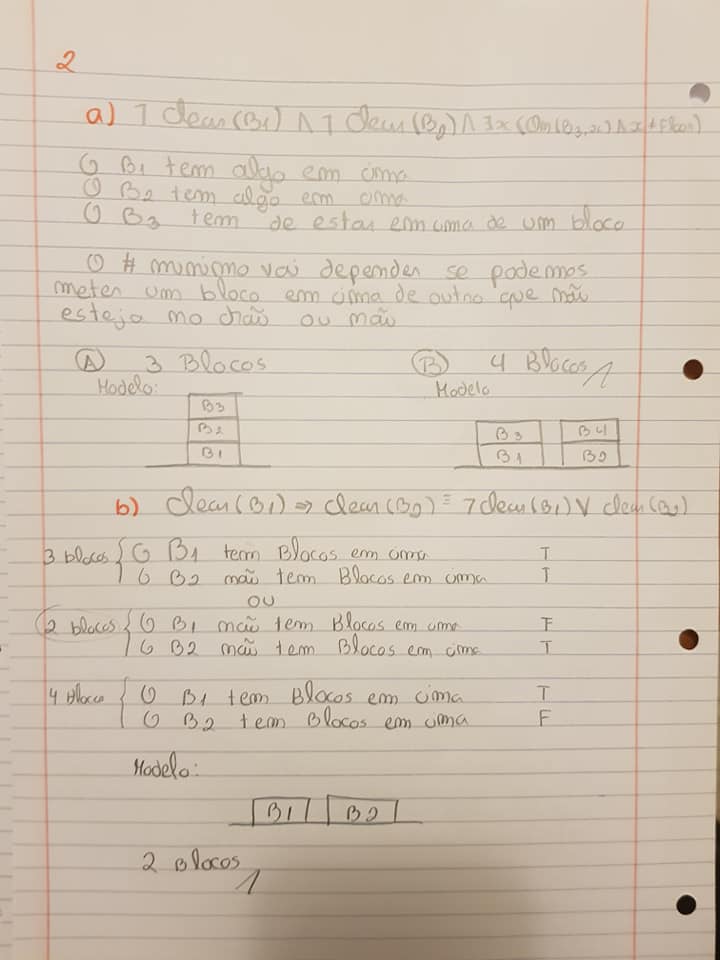 2
a) ¬ Clear(B1) ∧ ¬ Clear(B2) ∧ ∃x (On(B3,x) ∧ x ≠ Floor)
O B1 tem algo em cima
O B2 tem algo em cima
O B3 tem de estar em cima de um bloco
O # minimo vai depender se podemos
meter um bloco em cima de outro que não
esteja no chão ou não
A 3 Blocos B 4 Blocos
Modelo: Modelo
B3
B2
B1
B3 B4
B1 B2
b) Clear(B1) ⇒ Clear(B2) ≡ ¬ Clear(B1) ∨ Clear(B2)
3 blocos { O B1 tem Blocos em cima T
O B2 não tem Blocos em cima T
OU
2 blocos { O B1 não tem Blocos em cima F
O B2 não tem Blocos em cima T
4 Bloco { O B1 tem Blocos em cima T
O B2 tem Blocos em cima F
Modelo:
B1 B2
2 Blocos